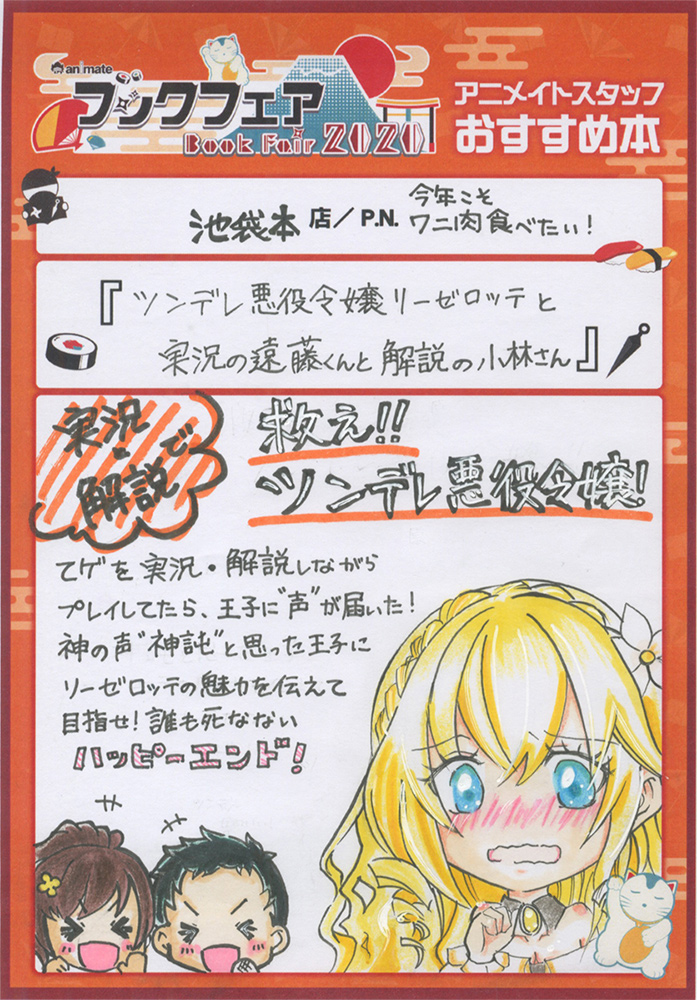 animate
ブックフェア
Book Fair 2020
アニメイトスタッフ
おすすめ本
池袋本 店/P.N. 今年こそ
ワニ肉食べたい!
『ツンデレ悪役令嬢リーゼロッテと
実況の遠藤くんと解説の小林さん』
実況・
解説で
救え!!
ツンデレ悪役令嬢!
乙ゲを実況・解説しながら
プレイしてたら、王子に"声"が届いた!
神の声"神託"と思った王子に
リーゼロッテの魅力を伝えて
目指せ!誰も死なない
ハッピーエンド!